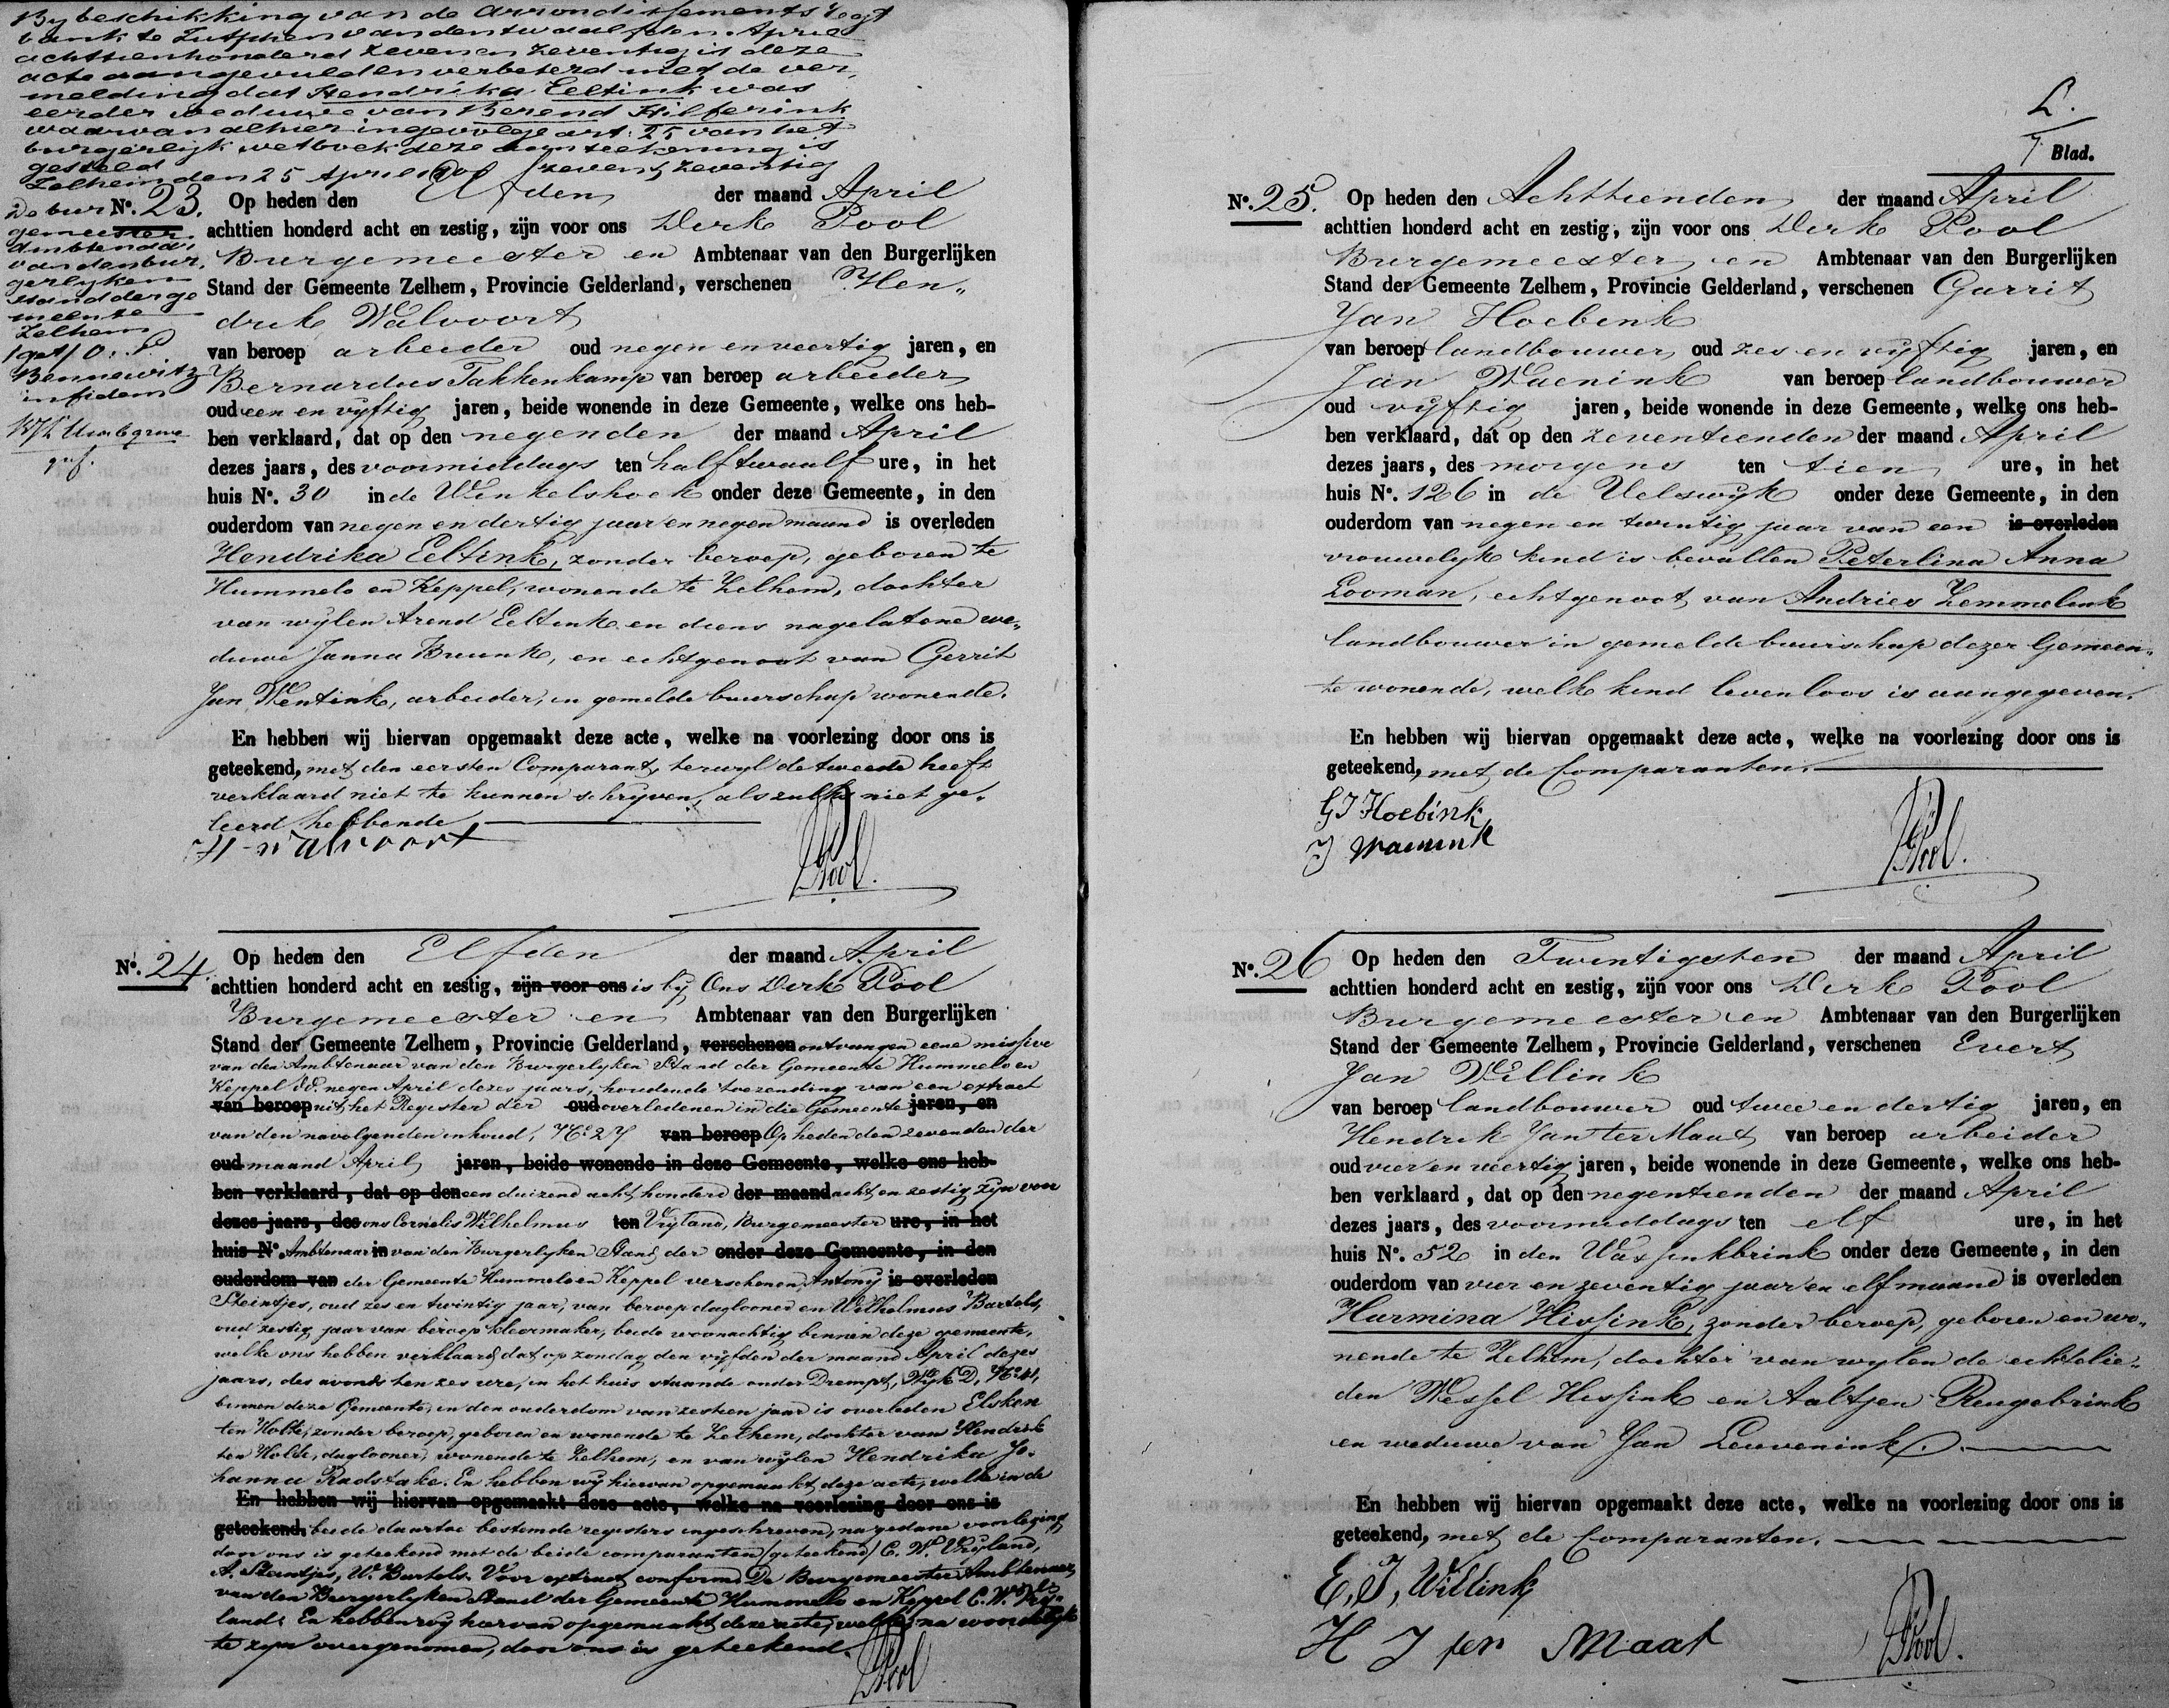 By beschikking van de Arrondissements Regt
bank te Zutphen van den twaalfden April
achttienhonderd zeven en zeventig is deze
acte aangevuld en verbeterd met de ver,
melding dat Hendrika Eeltink was
eerder weduwe van Berend Hilferink
waarvan alhier ingevolge art: 25 van het
burgerlijk wetboek deze aanteekening is
gesteld
Zelhem den 25 April zeven & zeventig
De bur
gemeester
Ambtenaar
van den bur,
gerlyken
stand der ge
meente
Zelhem
Bennewitz
in fidem
grif.
No. 23. Op heden den Elfden der maand April
achttien honderd acht en zestig, zijn voor ons Derk Pool
Burgemeester en Ambtenaar van den Burgerlijken
Stand der Gemeente Zelhem, Provincie Gelderland, verschenen Hen„
drik Walvoort
van beroep arbeider oud negen en veertig jaren, en
Bernardus Takkenkamp van beroep arbeider
oud een en vyftig jaren, beide wonende in deze Gemeente, welke ons heb-
ben verklaard, dat op den negenden der maand April
dezes jaars, des voormiddags ten half twaalf ure, in het
huis No. 30 in de Winkelshoek onder deze Gemeente, in den
ouderdom van negen en dertig jaar en negen maand is overleden
Hendrika Eeltink, zonder beroep, geboren te
Hummelo en Keppel, wonende te Zelhem, dochter
van wylen Arend Eeltink en diens nagelatene we„
duwe Janna Bruunk, en echtgenoot van Gerrit
Jan Wentink, arbeider, in gemelde buurschap wonende.
En hebben wij hiervan opgemaakt deze acte, welke na voorlezing door ons is
geteekend, met den eersten Comparant, terwyl de tweede heeft
verklaard niet te kunnen schryven, als zulks niet ge„
leerd hebbende
H Walvoort
Pool.
No. 24. Op heden den Elfden der maand April
achttien honderd acht en zestig, zijn voor ons is by Ons Derk Pool
Burgemeester en Ambtenaar van den Burgerlijken
Stand der Gemeente Zelhem, Provincie Gelderland, verschenen ontvangen eene missive
van den Ambtenaar van den Burgerlyken Stand der Gemeente Hummelo en
Keppel dd. negen April dezes jaars, houdende toezending van een extract
van beroep uit het Register der oud overledenen in die Gemeente jaren, en
van den navolgenden inhoud, No 27 van beroep Op heden den zevenden der
oud maand April jaren, beide wonende in deze Gemeente, welke ons heb-
ben verklaard, dat op den een duizend acht honderd der maand acht en zestig zyn voor
dezes jaars, des ons Cornelis Wilhelmus ten Vryland, Burgemeester ure, in het
huis No. Ambtenaar in van den Burgerlyken Stand der onder deze Gemeente, in den
ouderdom van der Gemeente Hummelo en Keppel verschenen Antony is overleden
Steintjes, oud zes en twintig jaar, van beroep daglooner en Wilhelmus Bartels,
oud zestig jaar van beroep kleermaker, beide woonachtig binnen deze gemeente,
welke ons hebben verklaard dat op zondag den vyfden der maand April dezes
jaars, des avonds ten zes ure, in het huis staande onder Drempt, Wyk D, No 41,
binnen deze Gemeente, in den ouderdom van zestien jaar is overleden Elsken
ten Holte, zonder beroep, geboren en wonende te Zelhem, dochter van Hendrik
ten Holte, daglooner, wonende te Zelhem, en van wylen Hendrika Jo„
hanna Radstake. En hebben wy hiervan opgemaakt deze acte, welke in de
En hebben wij hiervan opgemaakt deze acte, welke na voorlezing door ons is
geteekend, beide daartoe bestemde registers ingeschreven, na gedane voorlezing
door ons is geteekend met de beide comparanten (geteekend) C. W. Vryland,
A. Steintjes, W. Bartels. Voor extract conform De Burgemeester Ambtenaar
van den Burgerlyken Stand der Gemeente Hummelo en Keppel C. W. Vry„
land. En hebben wy hiervan opgemaakt deze acte, welke, na woordelyk
te zyn overgenomen, door ons is geteekend.
Pool
L.
7 Blad.
No. 25. Op heden den Achttienden der maand April
achttien honderd acht en zestig, zijn voor ons Derk Pool
Burgemeester en Ambtenaar van den Burgerlijken
Stand der Gemeente Zelhem, Provincie Gelderland, verschenen Garrit
Jan Hoebink
van beroep landbouwer oud zes en vyftig jaren, en
Jan Waenink van beroep landbouwer
oud vyftig jaren, beide wonende in deze Gemeente, welke ons heb-
ben verklaard, dat op den zeventienden der maand April
dezes jaars, des morgens ten tien ure, in het
huis No. 126 in de Velswyk onder deze Gemeente, in den
ouderdom van negen en twintig jaar van een is overleden
vrouwelyk kind is bevallen Peterlina Anna
Looman, echtgenoot van Andries Zemmelink
landbouwer in gemelde buurschap dezer Gemeen„
te wonende, welk kind levenloos is aangegeven.
En hebben wij hiervan opgemaakt deze acte, welke na voorlezing door ons is
geteekend, met de Comparanten.
GJ Hoebink
J Waenink
Pool.
No. 26 Op heden den Twintigsten der maand April
achttien honderd acht en zestig, zijn voor ons Derk Pool
Burgemeester en Ambtenaar van den Burgerlijken
Stand der Gemeente Zelhem, Provincie Gelderland, verschenen Evert
Jan Willink
van beroep landbouwer oud twee en dertig jaren, en
Hendrik Jan ter Maat van beroep arbeider
oud vier en veertig jaren, beide wonende in deze Gemeente, welke ons heb-
ben verklaard, dat op den negentienden der maand April
dezes jaars, des voormiddags ten elf ure, in het
huis No. 52 in den Wassinkbrink onder deze Gemeente, in den
ouderdom van vier en zeventig jaar en elf maand is overleden
Harmina Hissink, zonder beroep, geboren en wo„
nende te Zelhem, dochter van wylen de echtelie„
den Wessel Hissink en Aaltjen Rengebrink
en weduwe van Jan Leuvenink.
En hebben wij hiervan opgemaakt deze acte, welke na voorlezing door ons is
geteekend, met de Comparanten.
E, J, Willink
H J ter Maat
Pool.